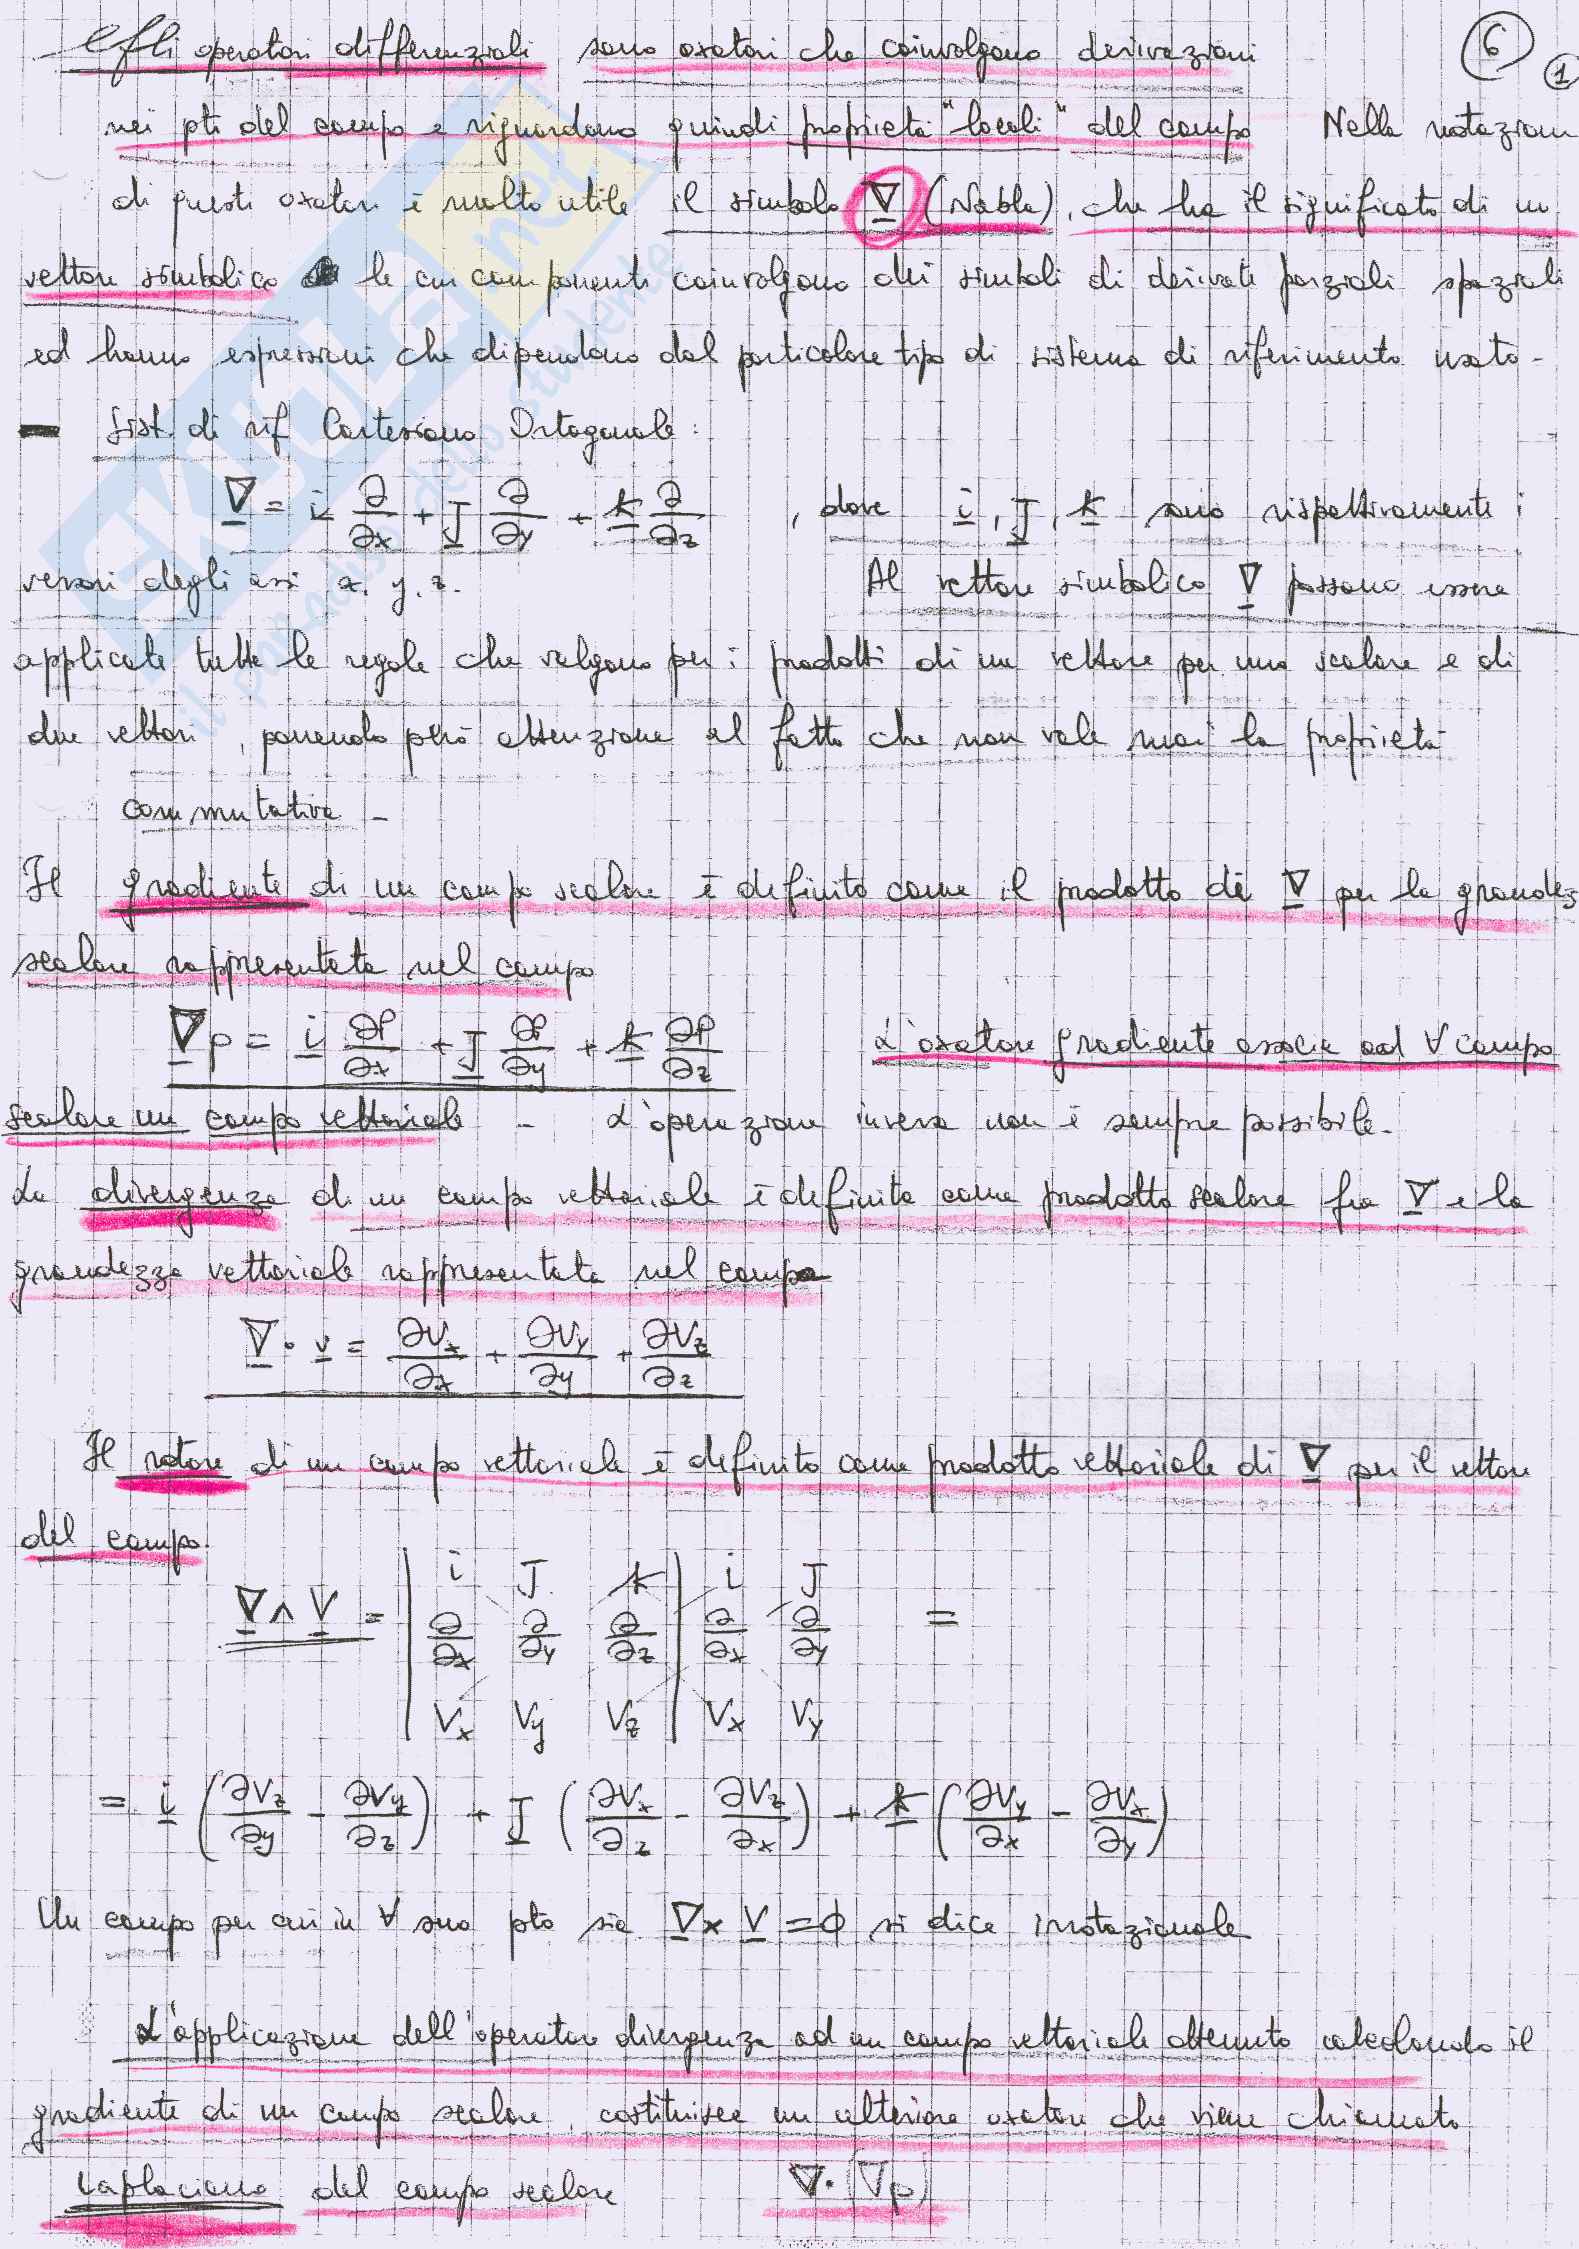 Gli operatori differenziali sono oxatori che coinvolgono derivazioni 6 1
nei pti del campo e riguardano quindi proprietà "locali" del campo Nella notazion
di questi oxatori è molto utile il simbolo ∇ (Nabla), che ha il significato di un
vettore simbolico le cui componenti coinvolgono dei simboli di derivate parziali spaziali
ed hanno espressioni che dipendono dal particolare tipo di sistema di riferimento usato -
- Sist. di rif Cartesiano Ortogonale:
∇ = i ∂/∂x + J ∂/∂y + k ∂/∂z , dove i, J, k sono rispettivamente i
versori degli assi x, y, z. Al vettore simbolico ∇ possono essere
applicate tutte le regole che valgono per i prodotti di un vettore per uno scalare e di
due vettori, ponendo però attenzione al fatto che non vale mai la proprietà
commutativa -
Il gradiente di un campo scalare è definito come il prodotto di ∇ per la grandez
scalare rappresentata nel campo
∇p = i ∂P/∂x + J ∂P/∂y + k ∂P/∂z L'oxatore gradiente associa ad ∀ campo
scalare un campo vettoriale - L'operazione inversa non è sempre possibile-
La divergenza di un campo vettoriale è definita come prodotto scalare fra ∇ e la
grandezza vettoriale rappresentata nel campo
∇ · v = ∂Vx/∂x + ∂Vy/∂y + ∂Vz/∂z
Il rotore di un campo vettoriale è definito come prodotto vettoriale di ∇ per il vettore
del campo.
i J k | i J
∇ ∧ V = | ∂/∂x ∂/∂y ∂/∂z | ∂/∂x ∂/∂y =
Vx Vy Vz | Vx Vy
= i (∂Vz/∂y - ∂Vy/∂z) + J (∂Vx/∂z - ∂Vz/∂x) + k (∂Vy/∂x - ∂Vx/∂y)
Un campo per cui in ∀ suo pto sia ∇ × V = ϕ si dice irrotazionale
L'applicazione dell'operatore divergenza ad un campo vettoriale ottenuto calcolando il
gradiente di un campo scalare, costituisce un ulteriore oxatore che viene chiamato
Laplaciano del campo scalare ∇·(∇p)
SKUOLA.net
il paradiso dello studente